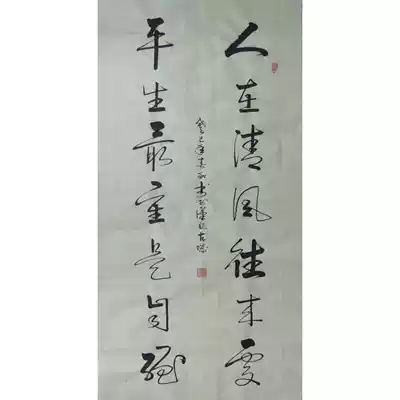 人在清风往来处
平生最重是自强
癸巳年春